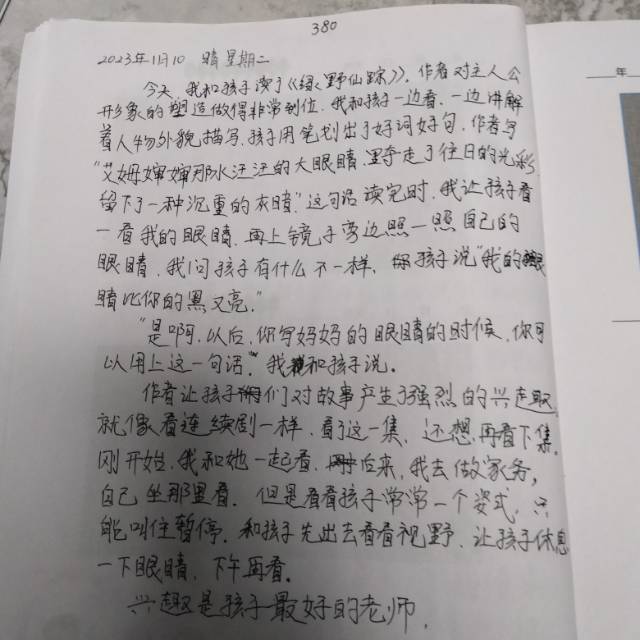 380
2023年11月10 晴 星期二
今天,我和孩子读了《绿野仙踪》,作者对主人公
形象的塑造做得非常到位,我和孩子一边看,一边讲解
着人物外貌描写,孩子用笔划出了好词好句,作者写
"艾姆婶婶那水汪汪的大眼睛,夺走了往日的光彩,
留下了一种沉重的灰暗"这句话读完时,我让孩子看
一看我的眼睛,再上镜子旁边照一照自己的
眼睛,我问孩子有什么不一样,孩子说"我的眼
睛比你的黑又亮。"
"是啊,以后,你写妈妈的眼睛的时候,你可
以用上这一句话。"我和孩子说。
作者让孩子们对故事产生了强烈的兴趣,
就像看连续剧一样,看了这一集,还想再看下集,
刚开始,我和她一起看,后来,我去做家务,
自己坐那里看,但是看看孩子常常一个姿式,只
能叫住暂停,和孩子先出去看看视野,让孩子休息
一下眼睛,下午再看。
兴趣是孩子最好的老师,
年